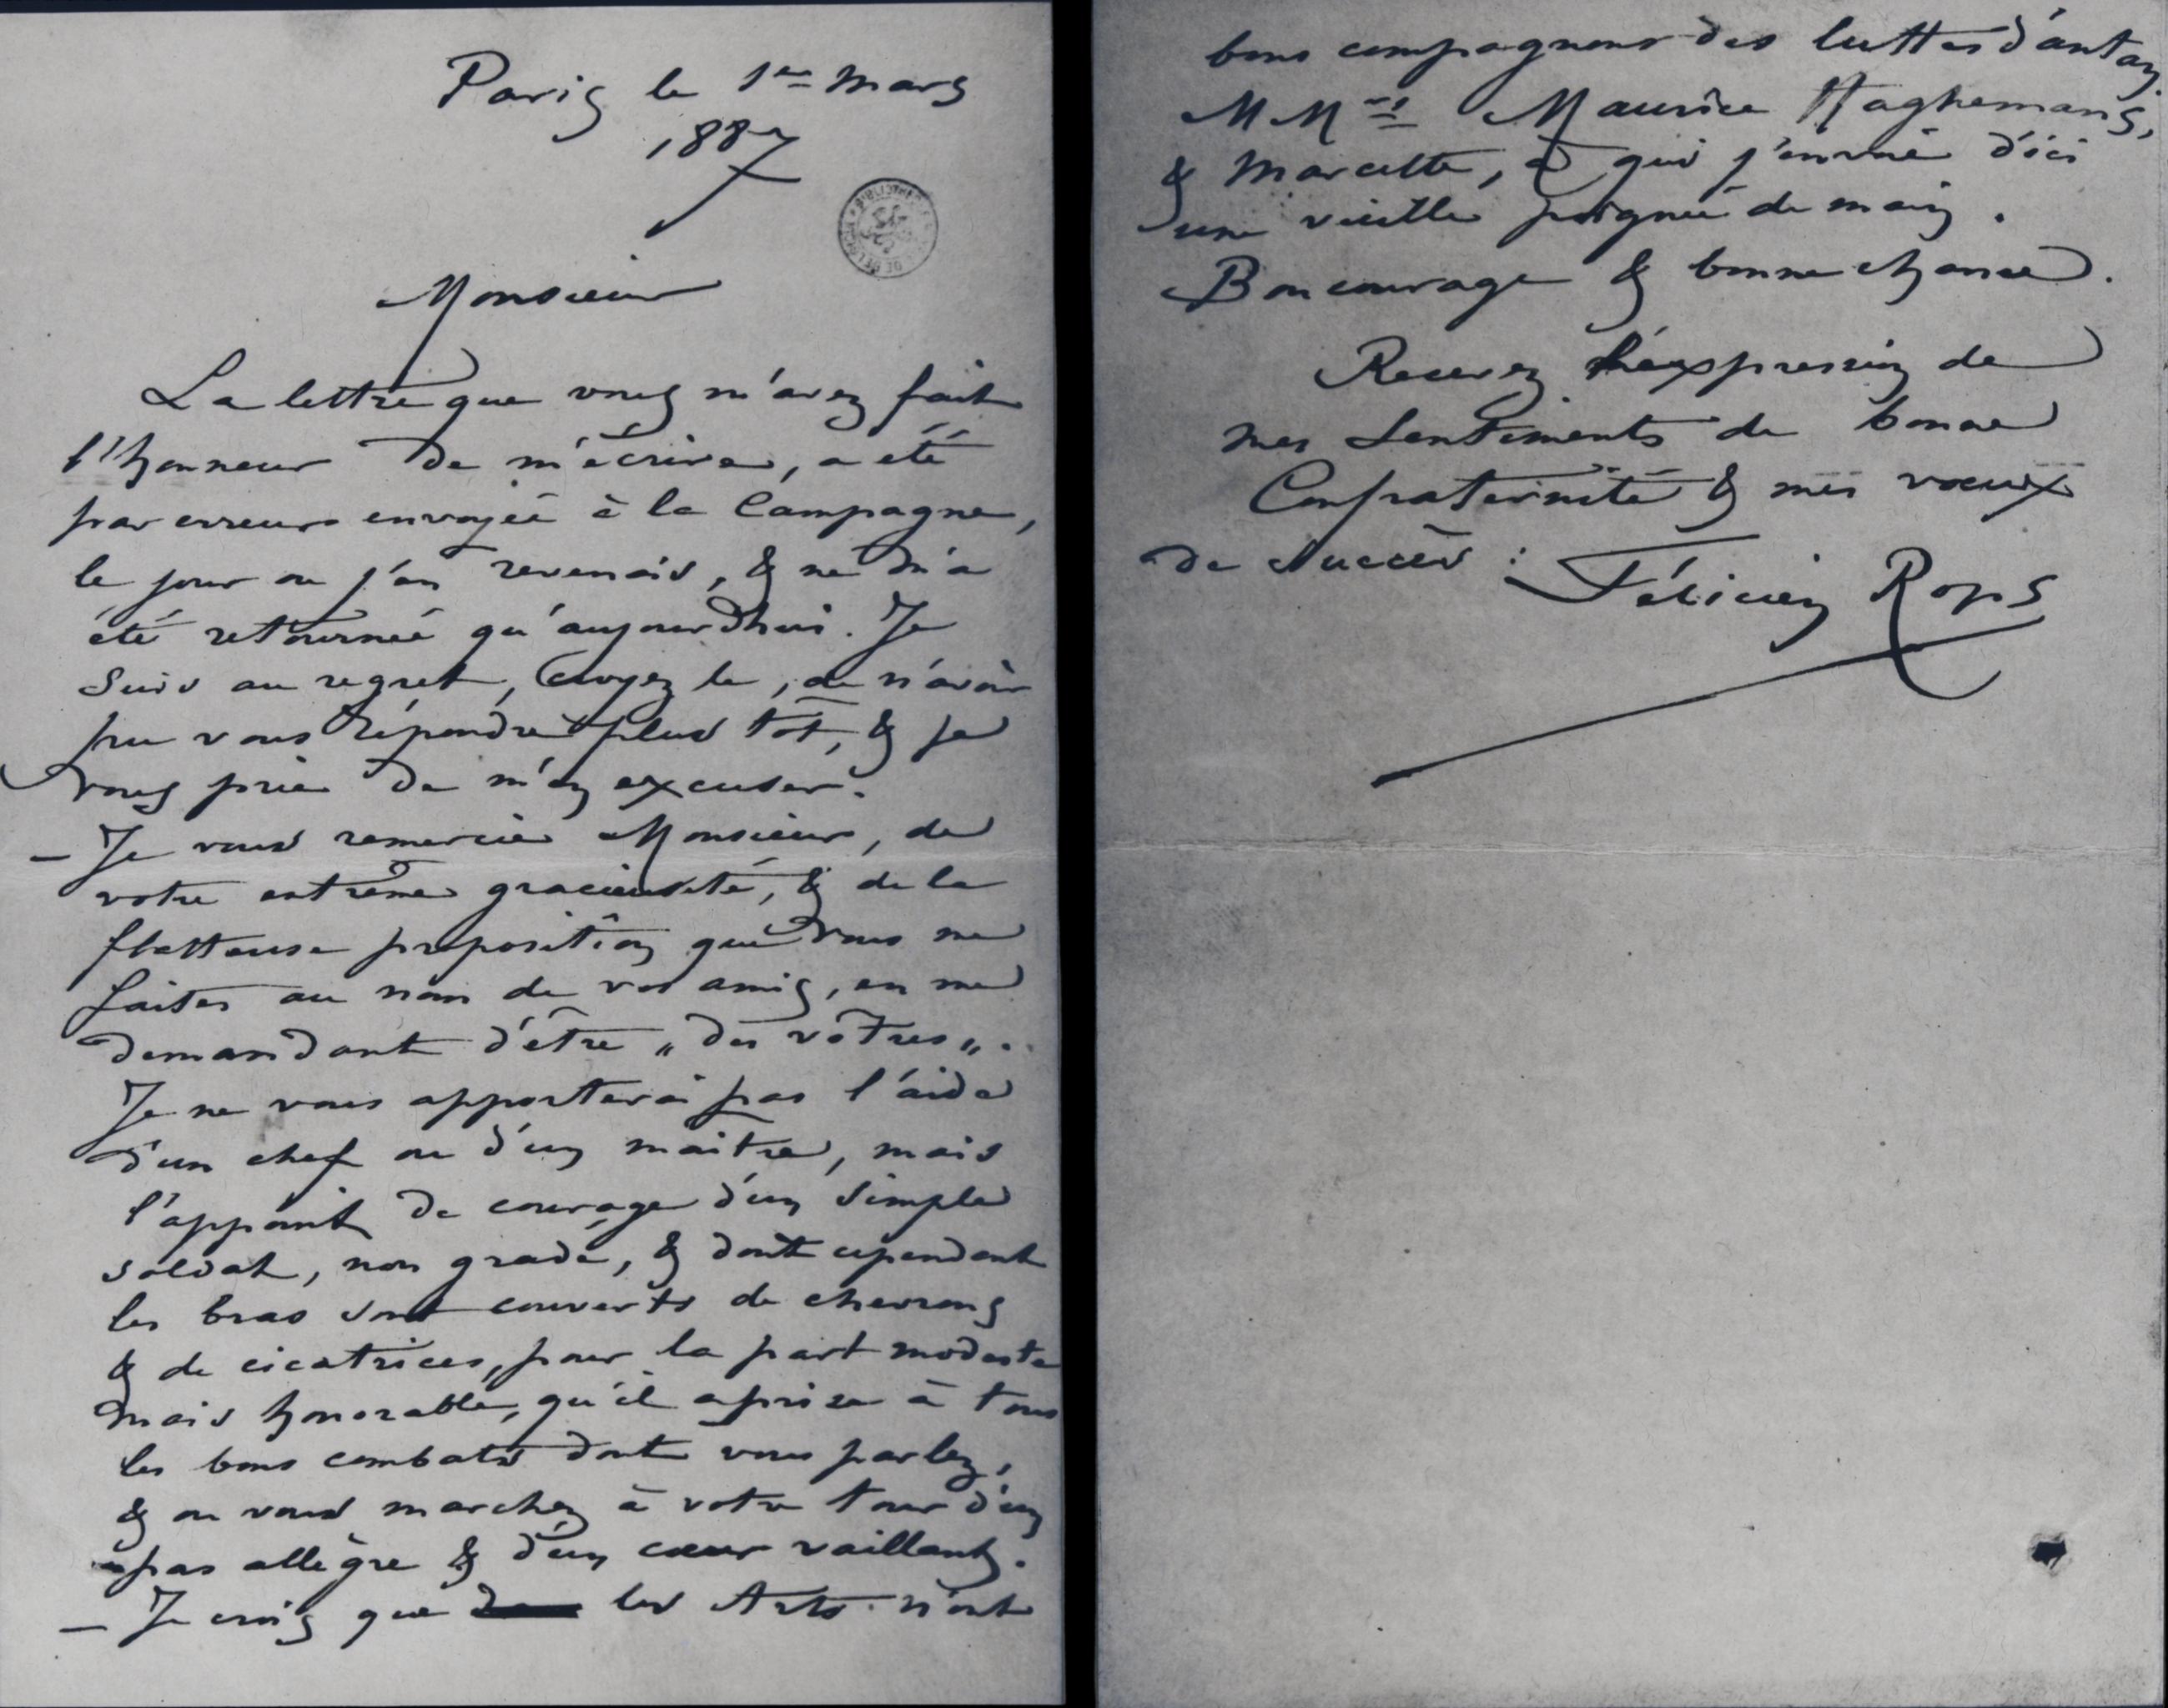 Paris le 1er Mars
1887
Monsieur
La lettre que vous m'avez fait
l'honneur de m'écrire, a été
par erreur envoyée à la Campagne,
le jour ou j'en revenais, & ne m'a
été retournée qu'aujourdhui. Je
suis au regret, croyez le, de n'avoir
pu vous répondre plus tôt, & je
vous prie de m'en excuser.
– Je vous remercie Monsieur, de
votre extrême gracieuseté, & de la
flatteuse proposition que vous me
faites au nom de vos amis, en me
demandant d'être „ des vôtres „.
Je ne vous apporterai pas l'aide
d'un chef ou d'un maître, mais
l'appoint de courage d'un simple
soldat, non gradé, & dont cependant
les bras sont couverts de chevrons
& de cicatrices, pour la part modeste
mais honorable, qu'il a prise à tous
les bons combats dont vous parlez,
& ou vous marchez à votre tour d'un
pas allègre & d'un cœur vaillant.
– Je crois que les Arts n'ont
bons compagnons des luttes d'antan
MMrs Maurice Haghemans,
& Marcette, à qui j'envoie d'ici
une vieille poignée de main.
Bon courage & bonne chance.
Recevez l'expression de
mes sentiments de bonne
Confraternité & mes vœux
de succès : Félicien Rops